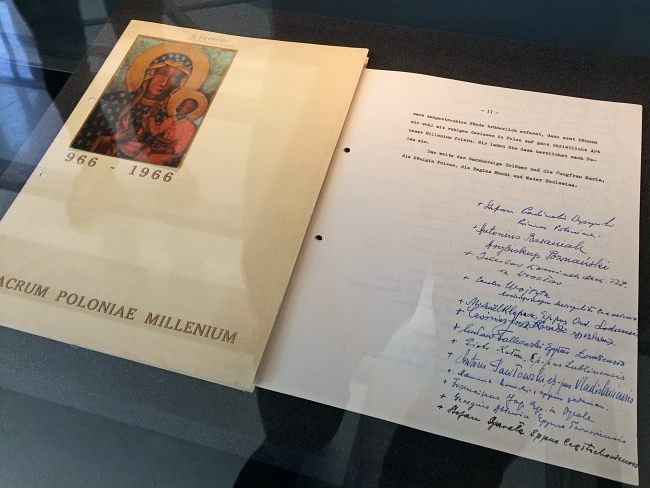 966 - 1966
SACRUM POLONIAE MILLENIUM
- 17 -
sere ausgestreckten Hände brüderlich erfasst, dann erst können
wir wohl mit ruhigem Gewissen in Polen auf ganz christliche Art
unser Millenium feiern. Wir laden Sie dazu herzlichst nach Po-
len ein.
Das walte der barmherzige Erlöser und die Jungfrau Maria,
die Königin Polens, die Regina Mundi und Mater Ecclesiae.
+ Stefan Kardinał Wyszyński
Prymas
+ Antonius Baraniak
Arcybiskup Poznański
+ Bolesław Kominek
+ Carolus Wojtyła
+ Michael Klepacz, Eppus
+ Czesław Falkowski Eppus Lomżensis
+ Piotr Kałwa, Ep-pus Lublinensis
+ Antoni Pawłowski ep-pus Vladislaviensis
+ Franciszek Jop
+ Stefan Bareła Eppus Częstochoviensis